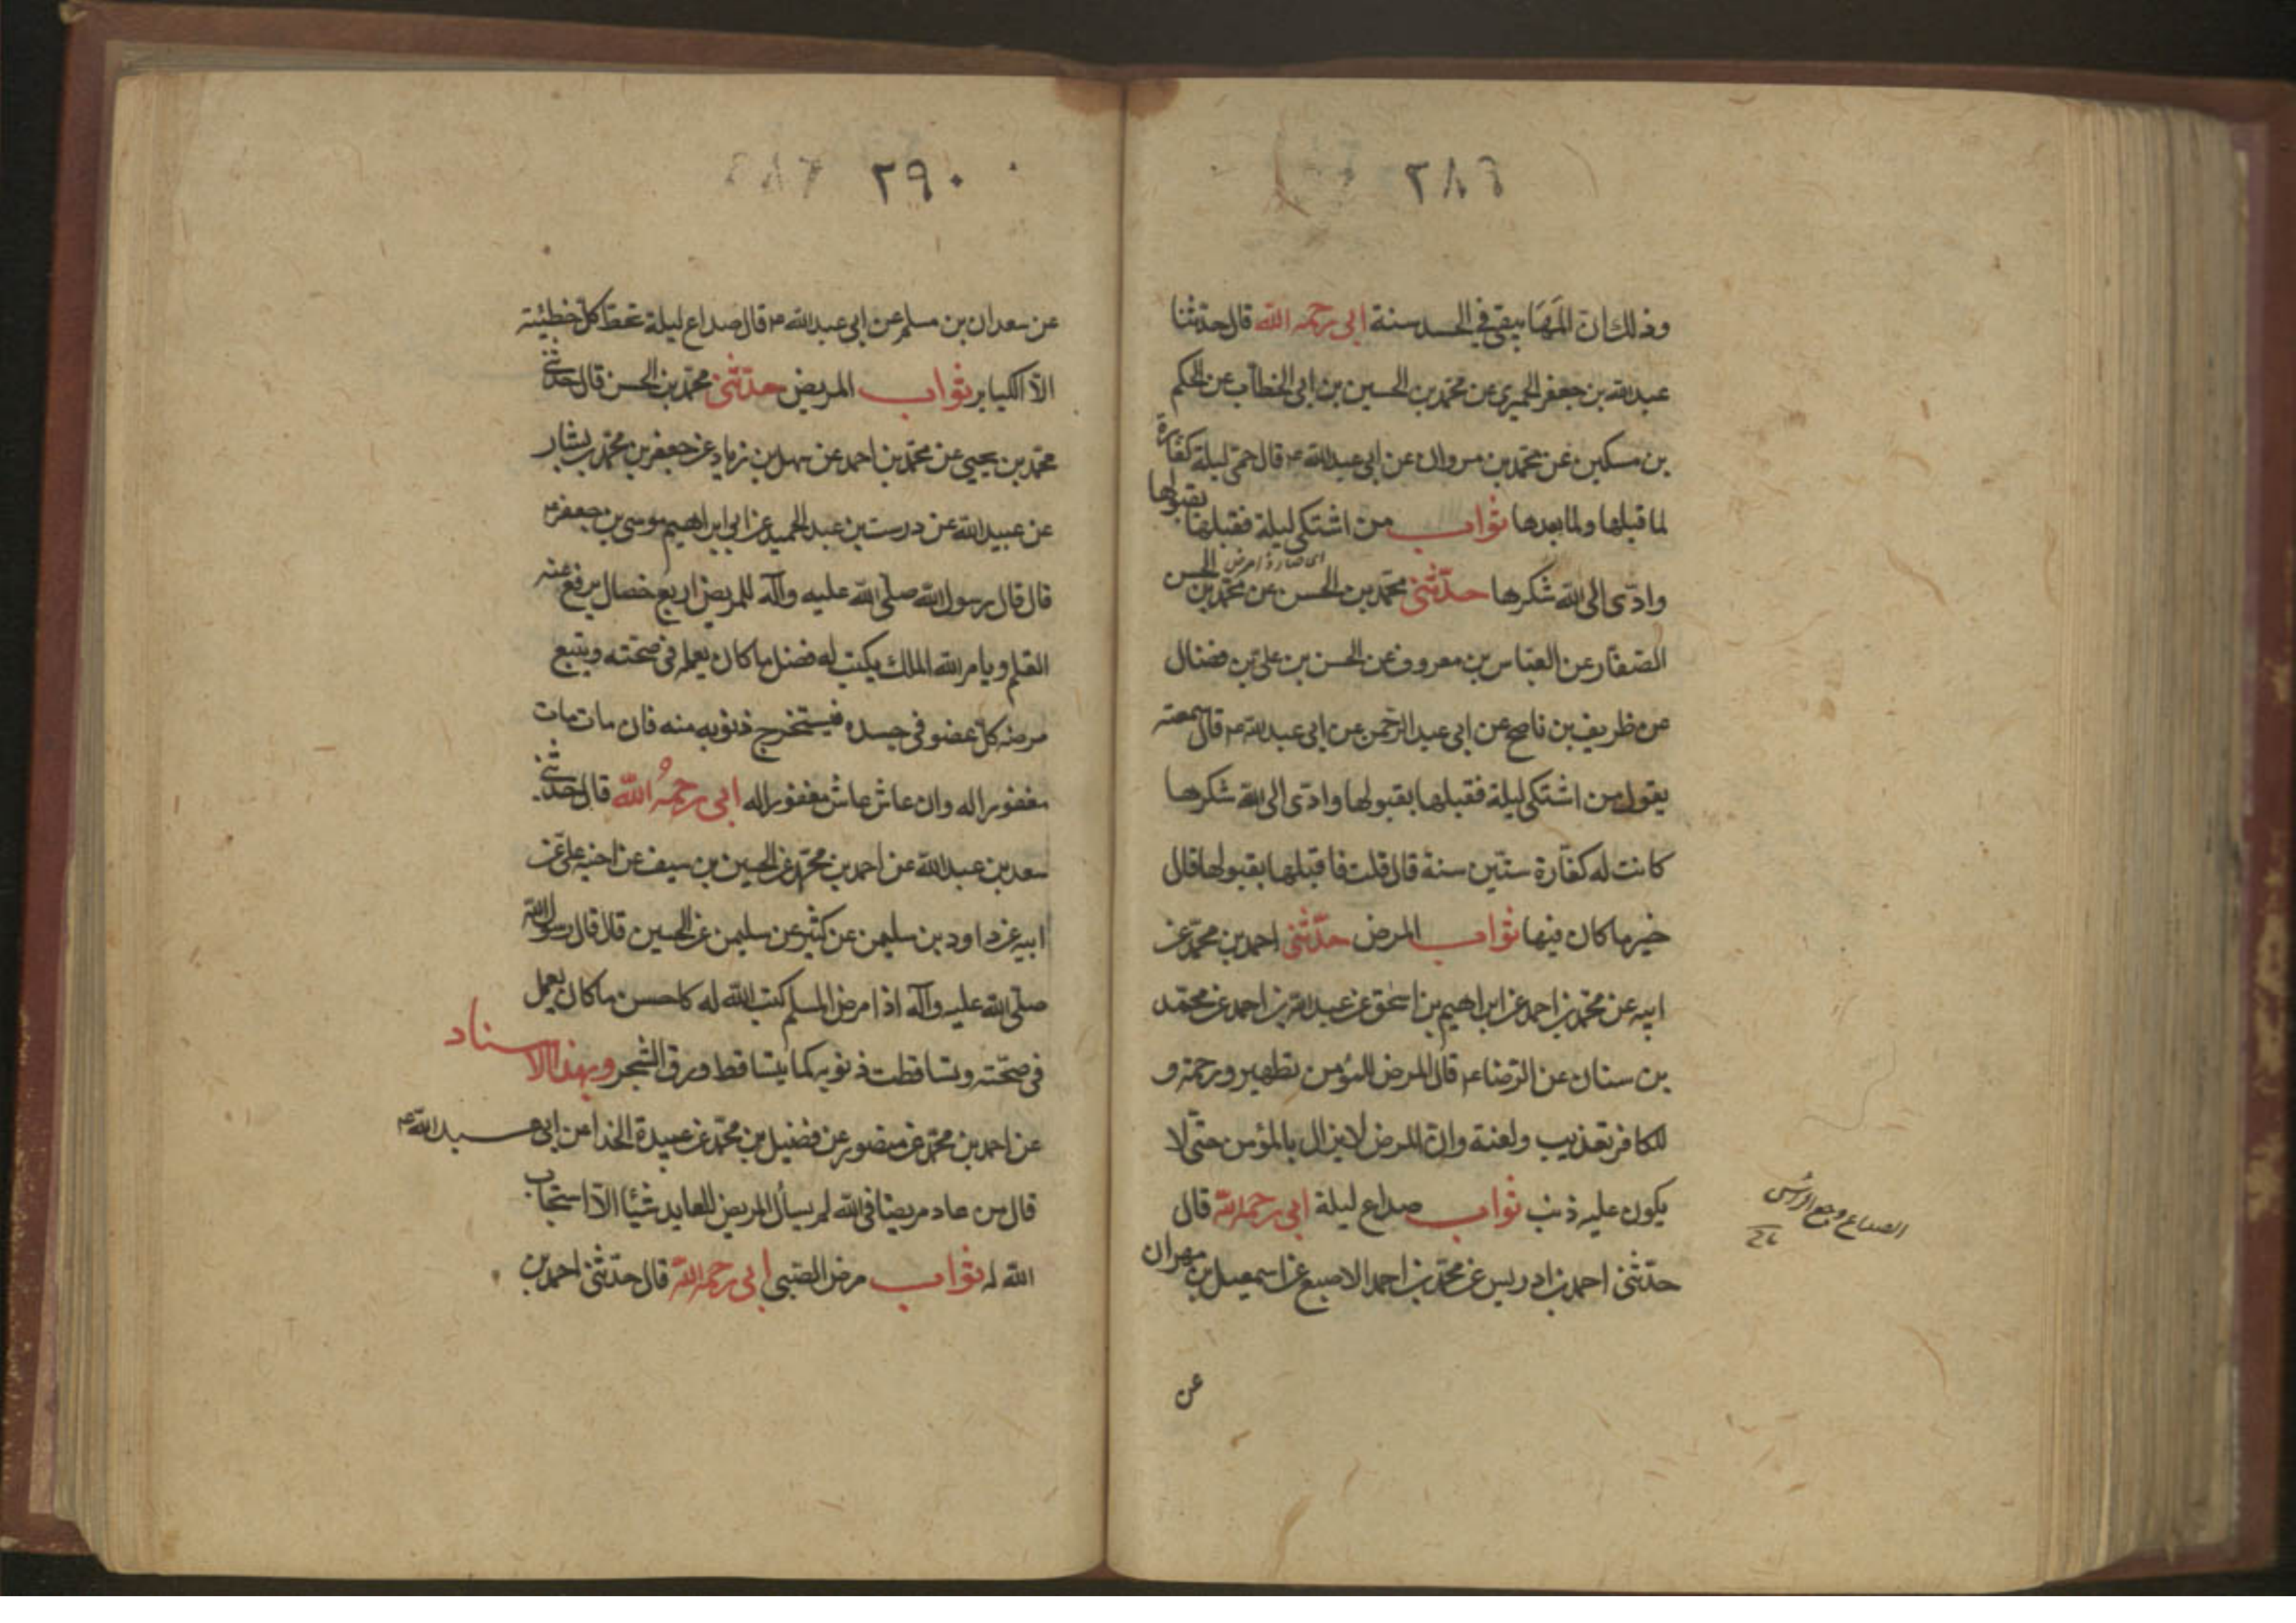 ٢٨٩
وذلك ان المها يبقى في الجسد سنة ابي رحمه الله قال حدثنا
عبد الله بن جعفر الحميري عن محمد بن الحسين بن ابي الخطاب عن الحكم
بن مسكين عن محمد بن مروان عن ابي عبد الله ع قال حمى ليلة كفارة
لما قبلها ولما بعدها ثواب من اشتكى ليلة فقبلها بقبولها
اى صار ذا مرض
وادّى الى الله شكرها حدّثنى محمد بن الحسن عن محمد بن الحسن
الصفار عن العباس بن معروف عن الحسن بن علي بن فضال
عن ظريف بن ناصح عن ابى عبد الرحمن عن ابى عبد الله ع قال سمعته
يقول من اشتكى ليلة فقبلها بقبولها وادّى الى الله شكرها
كانت له كفّارة ستّين سنة قال قلت فاقبلها بقبولها قال
خير ما كان فيها ثواب المرض حدّثنى احمد بن محمد عن
ابيه عن محمد بن احمد عن ابراهيم بن اسحق عن عبد الله بن احمد عن محمد
بن سنان عن الرضا ع قال المرض للمؤمن تطهير ورحمة و
للكافر تعذيب ولعنة وان المرض لا يزال بالمؤمن حتى لا
يكون عليه ذنب ثواب صداع ليلة ابى رحمه الله قال
الصداع وجع الرأس
حدّثنى احمد بن ادريس عن محمد بن احمد الاصبع عن اسمعيل بن مهران
عن
٢٩٠
عن سعدان بن مسلم عن ابى عبد الله ع قال صداع ليلة تحط كل خطيئة
الّا الكباير ثواب المريض حدّثنى محمد بن الحسن قال حدثنى
محمد بن يحيى عن محمد بن احمد عن سهل بن زياد عن جعفر بن محمد بن بشار
عن عبيد الله عن درست بن عبد الحميد عن ابى ابراهيم موسى بن جعفر ع
قال قال رسول الله صلى الله عليه وآله للمريض اربع خصال يرفع عنه
القلم ويامر الله الملك يكتب له فضل ما كان يعمله فى صحته ويتبع
مرضه كل عضو فى جسده فيستخرج ذنوبه منه فان مات مات
مغفورا له وان عاش عاش مغفورا له ابى رحمه الله قال حدثنى
سعد بن عبد الله عن احمد بن محمد عن الحسين بن سيف عن اخيه على عن
ابيه عن داود بن سليمن عن كثير عن سليمن عن الحسين قال قال رسول الله
صلى الله عليه وآله اذا مرض المسلم كتب الله له كاحسن ما كان يعمل
فى صحّته وتساقطت ذنوبه كما يتساقط ورق الشجر وبهذا الاسناد
عن احمد بن محمد عن منصور عن فضيل بن محمد عن عبيدة الحذا عن ابى عبد الله ع
قال من عاد مريضا فى الله لم يسأل المريض للعايد شيئا الّا استجاب
الله له ثواب مرض الصبى ابى رحمه الله قال حدثنى احمد بن